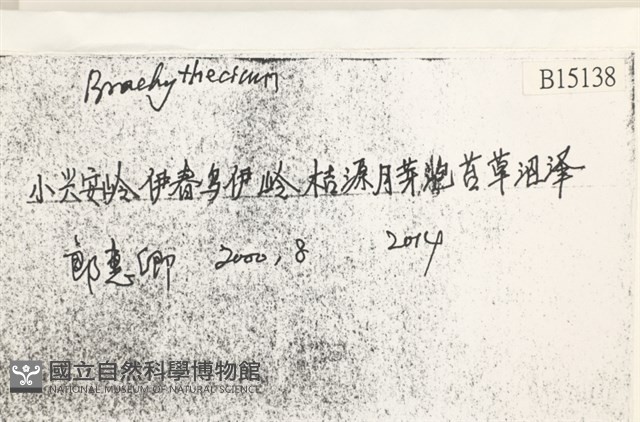 Brachythecium
B15138
小兴安岭伊春乌伊岭桔源月芽泡苔草沼泽
郎惠卿 2000,8 2014
國立自然科學博物館
NATIONAL MUSEUM OF NATURAL SCIENCE